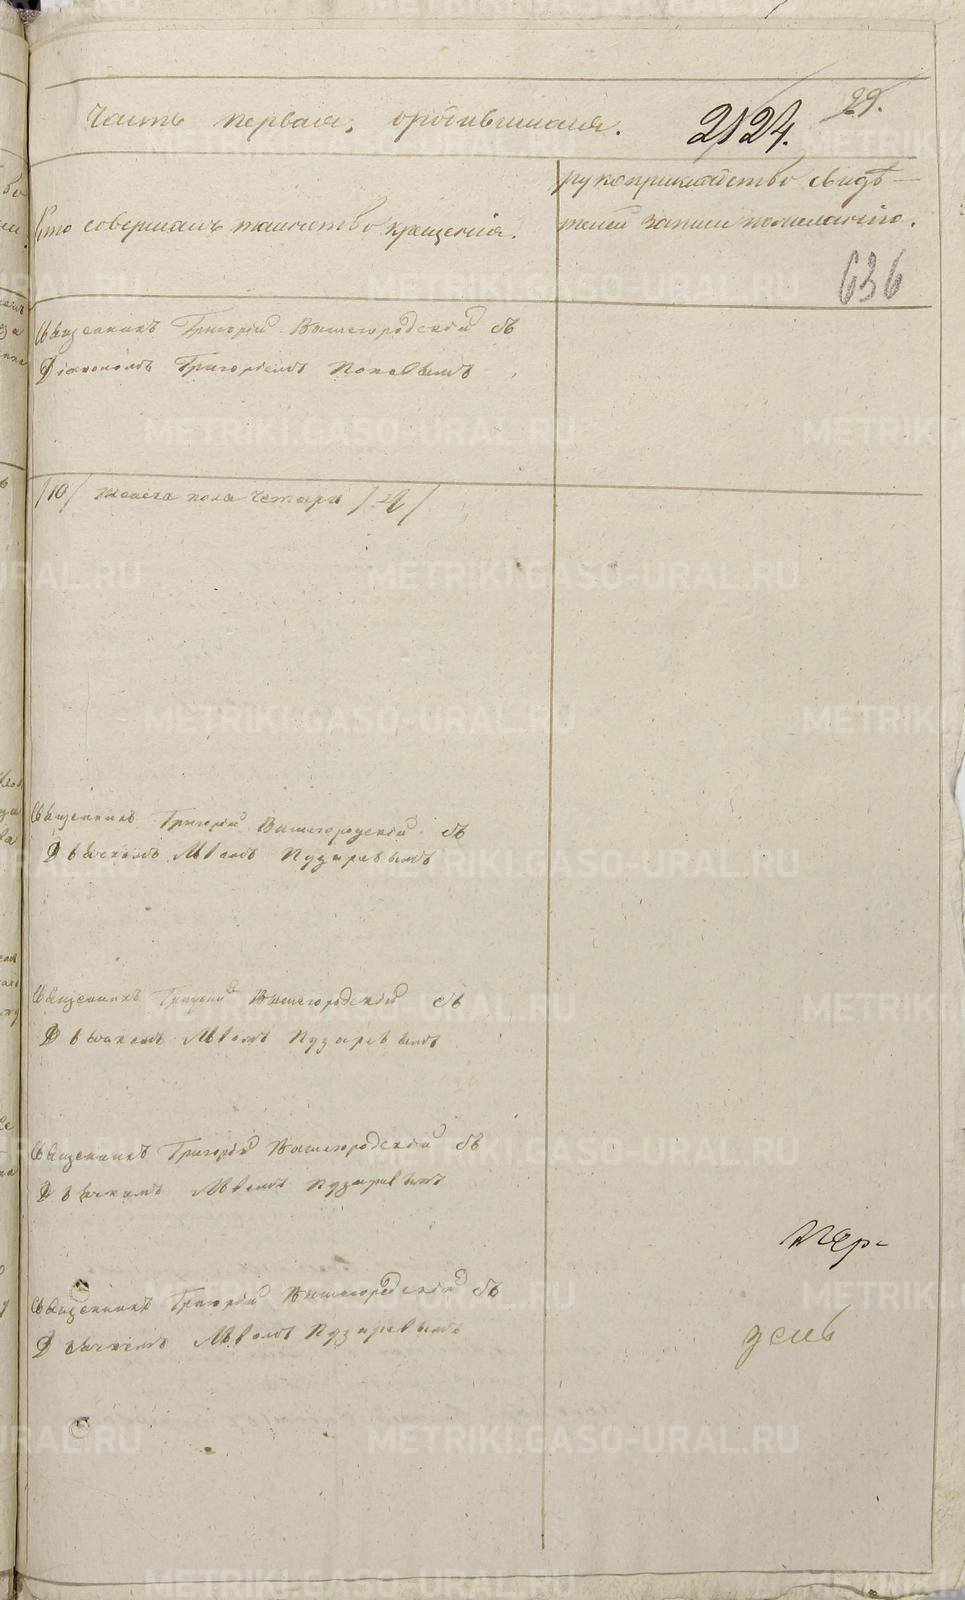 Часть первая, о родившихся.
2124.
29.
Кто совершалъ таинство крещенія.
рукоприкладство свидѣ—
телей записи по желанію.
636
Священникъ Григорій Вышегородскій съ
Діакономъ Григоріемъ Поповымъ
/10/ женска пола четыри /4/
Священникъ Григорій Вышегородскій съ
Дьячкомъ Пузыревымъ
Священникъ Григорій Вышегородскій съ
Дьячкомъ Пузыревымъ
Священникъ Григорій Вышегородскій съ
Дьячкомъ Пузыревымъ
Священникъ Григорій Вышегородскій съ
Дьячкомъ Пузыревымъ
день
METRIKI.GASO-URAL.RU